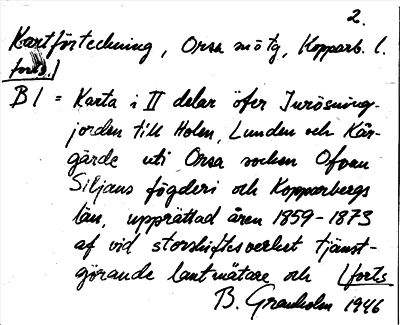 2.
Kartförteckning, Orsa mötg, Kopparb. l.
forts.)
B I = Karta i II delar öfer Inrösning-
jorden till Holen, Lunden och Kår-
gärde uti Orsa socken Ofvan
Siljans fögderi och Kopparbergs
län, upprättad åren 1859-1873
af vid storskiftesverket tjänst-
görande lantmätare och (forts
B. Granholm 1946